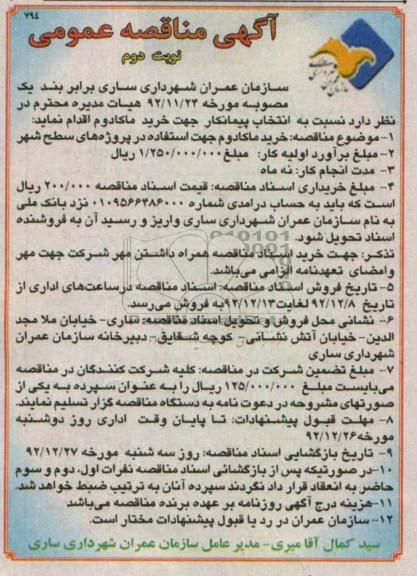 ۷۹۴
آگهی مناقصه عمومی
نوبت دوم
سازمان عمران شهرداری ساری برابر بند یک
مصوبه مورخه ۹۲/۱۱/۲۳ هیات مدیره محترم در
نظر دارد نسبت به انتخاب پیمانکار جهت خرید ماکادوم اقدام نماید:
۱-موضوع مناقصه: خرید ماکادوم جهت استفاده در پروژه‌های سطح شهر
۲-مبلغ برآورد اولیه کار: مبلغ ۱/۲۵۰/۰۰۰/۰۰۰ ریال
۳- مدت انجام کار: نه ماه
۴- مبلغ خریداری اسناد مناقصه: قیمت اسناد مناقصه ۲۰۰/۰۰۰ ریال
است که باید به حساب درآمدی شماره ۰۱۰۹۵۶۶۳۸۶۰۰۰ نزد بانک ملی
به نام سازمان عمران شهرداری ساری واریز و رسید آن به فروشنده
اسناد تحویل شود.
تذکر: جهت خرید اسناد مناقصه همراه داشتن مهر شرکت جهت مهر
وامضای تعهدنامه الزامی می‌باشد.
۵- تاریخ فروش اسناد مناقصه: اسناد مناقصه درساعت‌های اداری از
تاریخ ۹۲/۱۲/۸ لغایت۹۲/۱۲/۱۳به فروش می‌رسد.
۶- نشانی محل فروش و تحویل اسناد مناقصه: ساری- خیابان ملا مجد
الدین- خیابان آتش نشانی- کوچه شقایق- دبیرخانه سازمان عمران
شهرداری ساری
۷- مبلغ تضمین شرکت در مناقصه: کلیه شرکت کنندگان در مناقصه
می‌بایست مبلغ ۱۲۵/۰۰۰/۰۰۰ ریال را به عنوان سپرده به یکی از
صورتهای مشروحه در دعوت نامه به دستگاه مناقصه گزار تسلیم نمایند.
۸- مهلت قبول پیشنهادات: تا پایان وقت اداری روز دوشنبه
مورخه۹۲/۱۲/۲۶
۹- تاریخ بازگشایی اسناد مناقصه: روز سه شنبه مورخه ۹۲/۱۲/۲۷
۱۰-در صورتیکه پس از بازگشائی اسناد مناقصه نفرات اول، دوم و سوم
حاضر به انعقاد قرار داد نگردند سپرده آنان به ترتیب ضبط خواهد شد.
۱۱-هزینه درج آگهی روزنامه بر عهده برنده مناقصه می‌باشد
۱۲- سازمان عمران در رد یا قبول پیشنهادات مختار است.
سید کمال آقا میری- مدیر عامل سازمان عمران شهرداری ساری